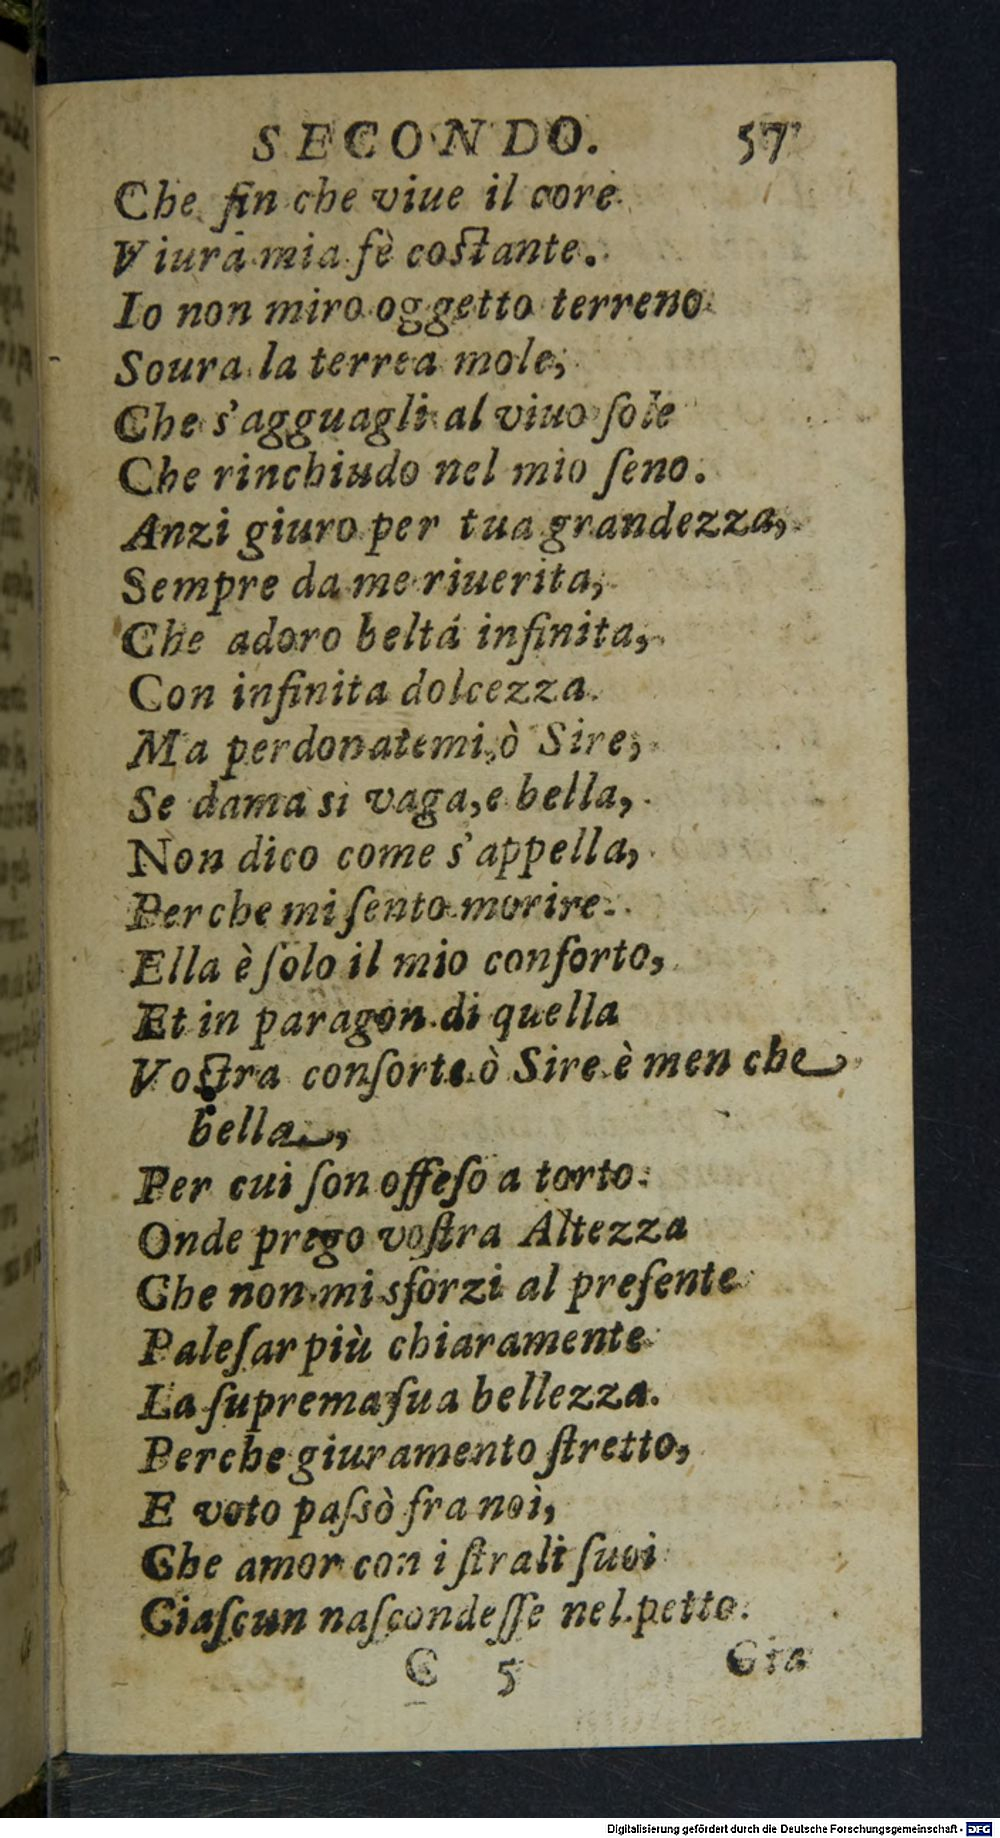 SECONDO. 57
Che fin che viue il core
Viurá mia fè costante.
Io non miro oggetto terreno
Soura la terrea mole,
Che s'agguagli al viuo ſole
Che rinchiudo nel mio ſeno.
Anzi giuro per tua grandezza,
Sempre da me riuerita,
Che adoro beltá infinita,
Con infinita dolcezza.
Ma perdonatemi, ò Sire,
Se dama si vaga, e bella,
Non dico come s'appella,
Perche mi ſento morire.
Ella è ſolo il mio conforto,
Et in paragon di quella
Vostra conſorte ò Sire è men che
bella,
Per cui ſon offeſo a torto.
Onde prego voſtra Altezza
Che non mi sforzi al preſente
Paleſar più chiaramente
La ſuprema ſua bellezza.
Perche giuramento ſtretto,
E voto paſsò fra noi,
Che amor con i ſtrali ſuoi
Giaſcun naſcondeſſe nel petto.
C 5 Gia
Digitalisierung gefördert durch die Deutsche Forschungsgemeinschaft - DFG